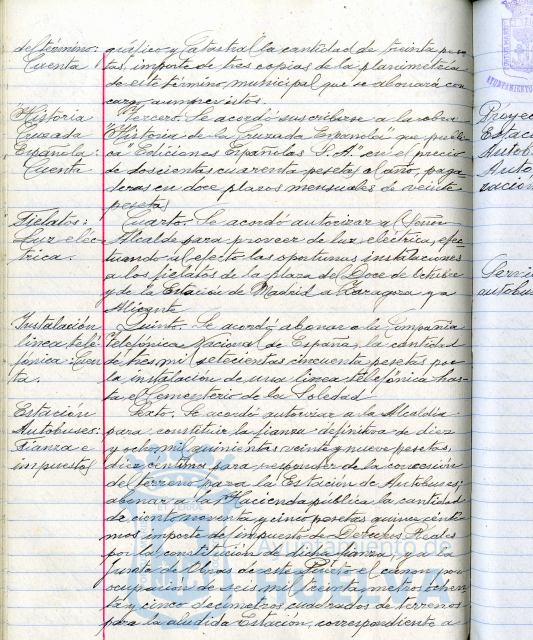 del término: gráfico y Catastral la cantidad de treinta pese-
Cuenta tas, importe de tres copias de la planimetría
de este término municipal que se abonará con
cargo a imprevistos.
Historia Tercero. Se acordó suscribirse a la obra
Cruzada "Historia de la Cruzada Española" que publi-
Española: ca "Ediciones Españolas S.A." en el precio
Cuenta de doscientas cuarenta pesetas al año, paga-
deras en doce plazos mensuales de veinte
pesetas
Fielatos: Cuarto. Se acordó autorizar al Señor
Luz eléc- Alcalde para proveer de luz eléctrica, efec-
trica. tuando al efecto las oportunas instalaciones
a los fielatos de la plaza del Doce de Octubre
y de la Estación de Madrid a Zaragoza y a
Alicante
Instalación Quinto. Se acordó abonar a la Compañía
línea tele- Telefónica Nacional de España, la cantidad
fónica: Cuen- de tres mil setecientas cincuenta pesetas por
ta. la instalación de una línea telefónica has-
ta el Cementerio de la Soledad
Estación Sexto. Se acordó autorizar a la Alcaldía
Autobuses: para constituir la fianza definitiva de diez
Fianza e y ocho mil quinientas veinte y nueve pesetas,
impuestos diez céntimos para responder de la concesión
del terreno para la Estación de Autobuses;
abonar a la Hacienda pública la cantidad
de ciento noventa y cinco pesetas quince cénti-
mos importe de impuesto de Derechos Reales
por la constitución de dicha fianza, y a la
Junta de Obras de este Puerto el canon por
ocupación de seis mil treinta metros ochen-
ta y cinco decímetros cuadrados de terrenos
para la aludida Estación, correspondiente a
Proyec
Estaci
Autob
Auto
zación
Servi
autobus
AYUNTAMIENTO
Ayuntamiento de
HUELVA